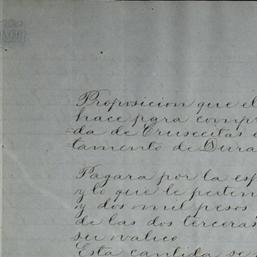 Proposicion que el
hace para compr
da de Crusecitas
tamento de Dura
Pagara por la esp
y lo que le perten
y dos mil pesos
de las dos terceras
su valuo
Esta cantida se